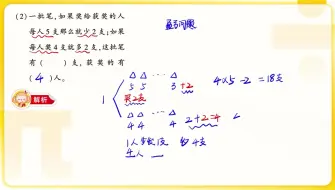 (2)一批笔,如果奖给获奖的人
每人5支那么就少2支;如果
每人奖4支就多2支,这批笔
有( )支,获奖的有
(4)人。
盈亏问题
解析
△ △ … △
5 5 3+2
买2支
4×5-2=18支
1
△△ … △
4 4 4
2+2=4
1人多发1支
4支
4人